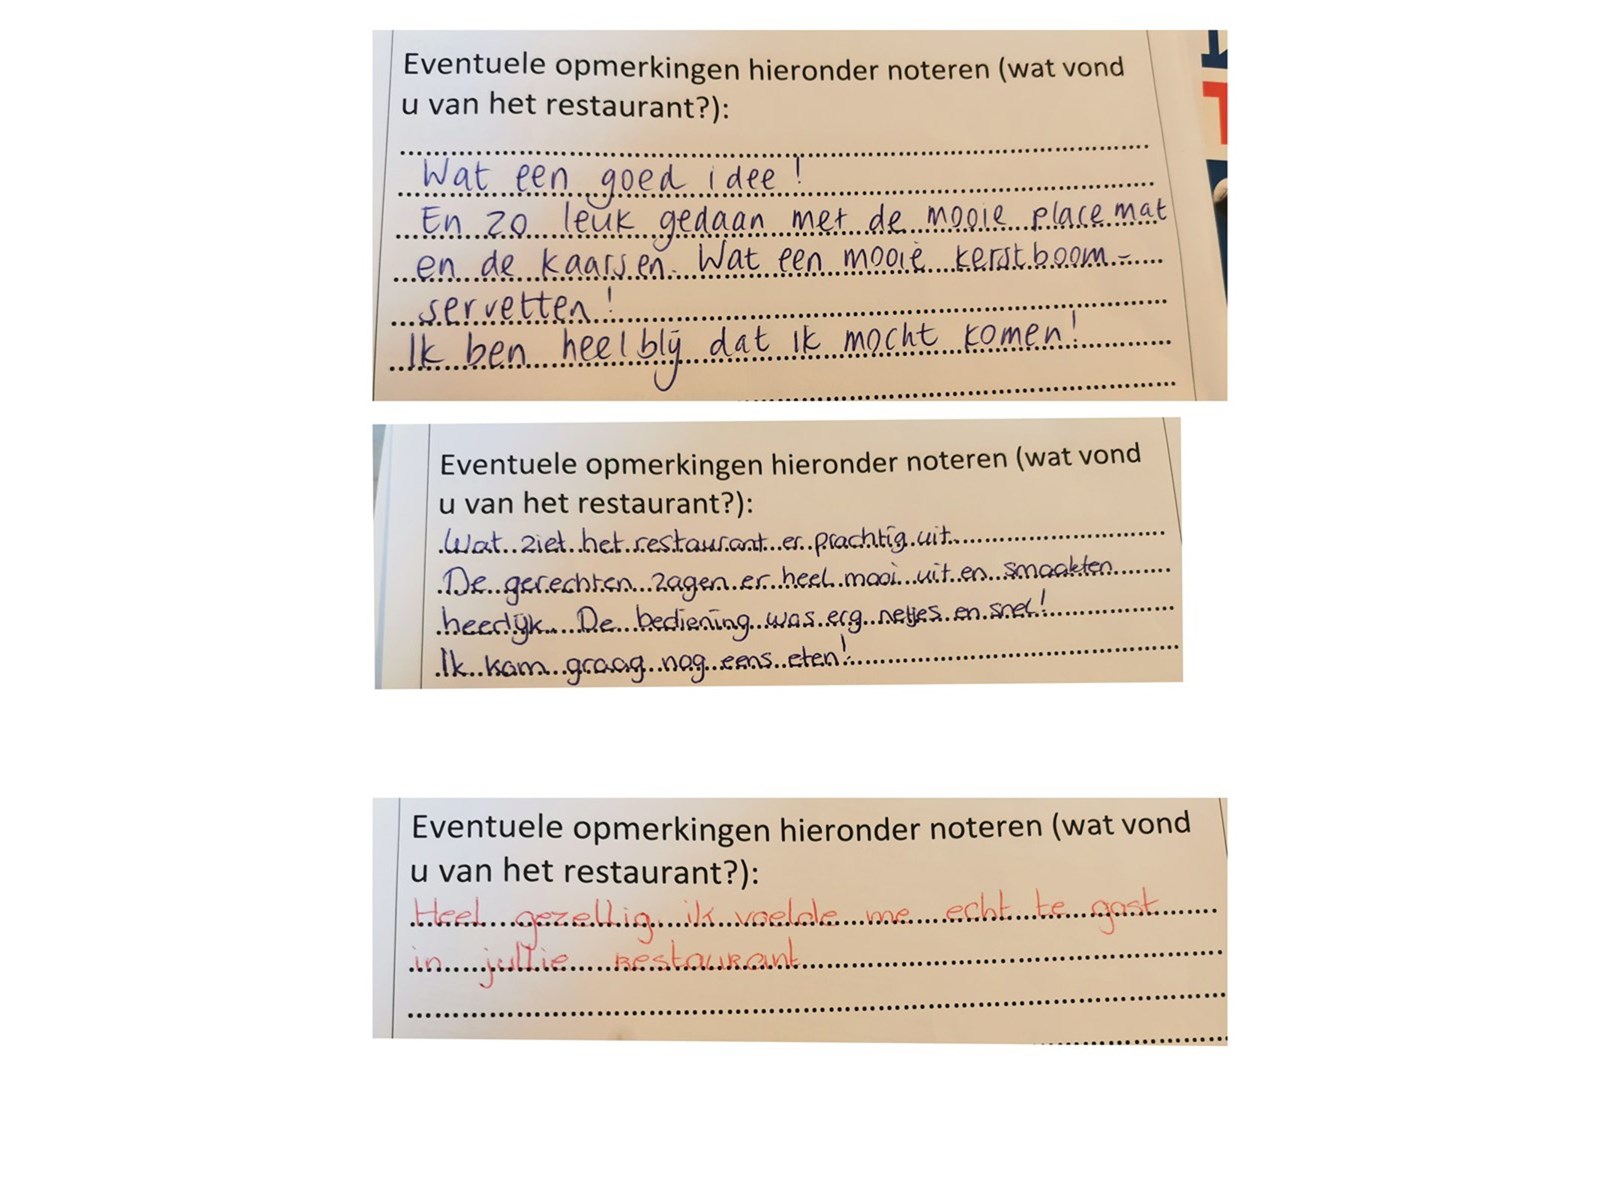 Eventuele opmerkingen hieronder noteren (wat vond
u van het restaurant?):
Wat een goed idee!
En zo leuk gedaan met de mooie placemat
en de kaarsen. Wat een mooie kerstboom-
servetten!
Ik ben heel blij dat ik mocht komen!
Eventuele opmerkingen hieronder noteren (wat vond
u van het restaurant?):
Wat ziet het restaurant er prachtig uit.
De gerechten zagen er heel mooi uit en smaakten
heerlijk. De bediening was erg netjes en snel!
Ik kom graag nog eens eten!
Eventuele opmerkingen hieronder noteren (wat vond
u van het restaurant?):
Heel gezellig, ik voelde me echt te gast
in jullie restaurant